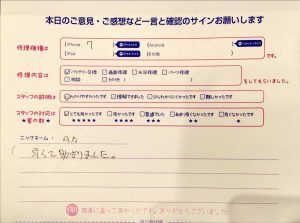 本日のご意見・ご感想など一言と確認のサインお願いします
修理機種は
iPhone 7
Android
iPad
その他
です。
修理内容は
バッテリー交換 画面修理 水没修理 パーツ修理
その他(
をしてもらいました。
スタッフの説明は
わかりやすかった 理解できました 少しわかりにくかった 難しかった
です
スタッフの対応は
★星の数★
とても良かった 良かった 普通でした あまり良くなかった 良くなかった
★★★★★ ★★★★ ★★★ ★★ ★
です
ニックネーム:
早くて助かりました。
修理に送って良かったです。ありがとうございました